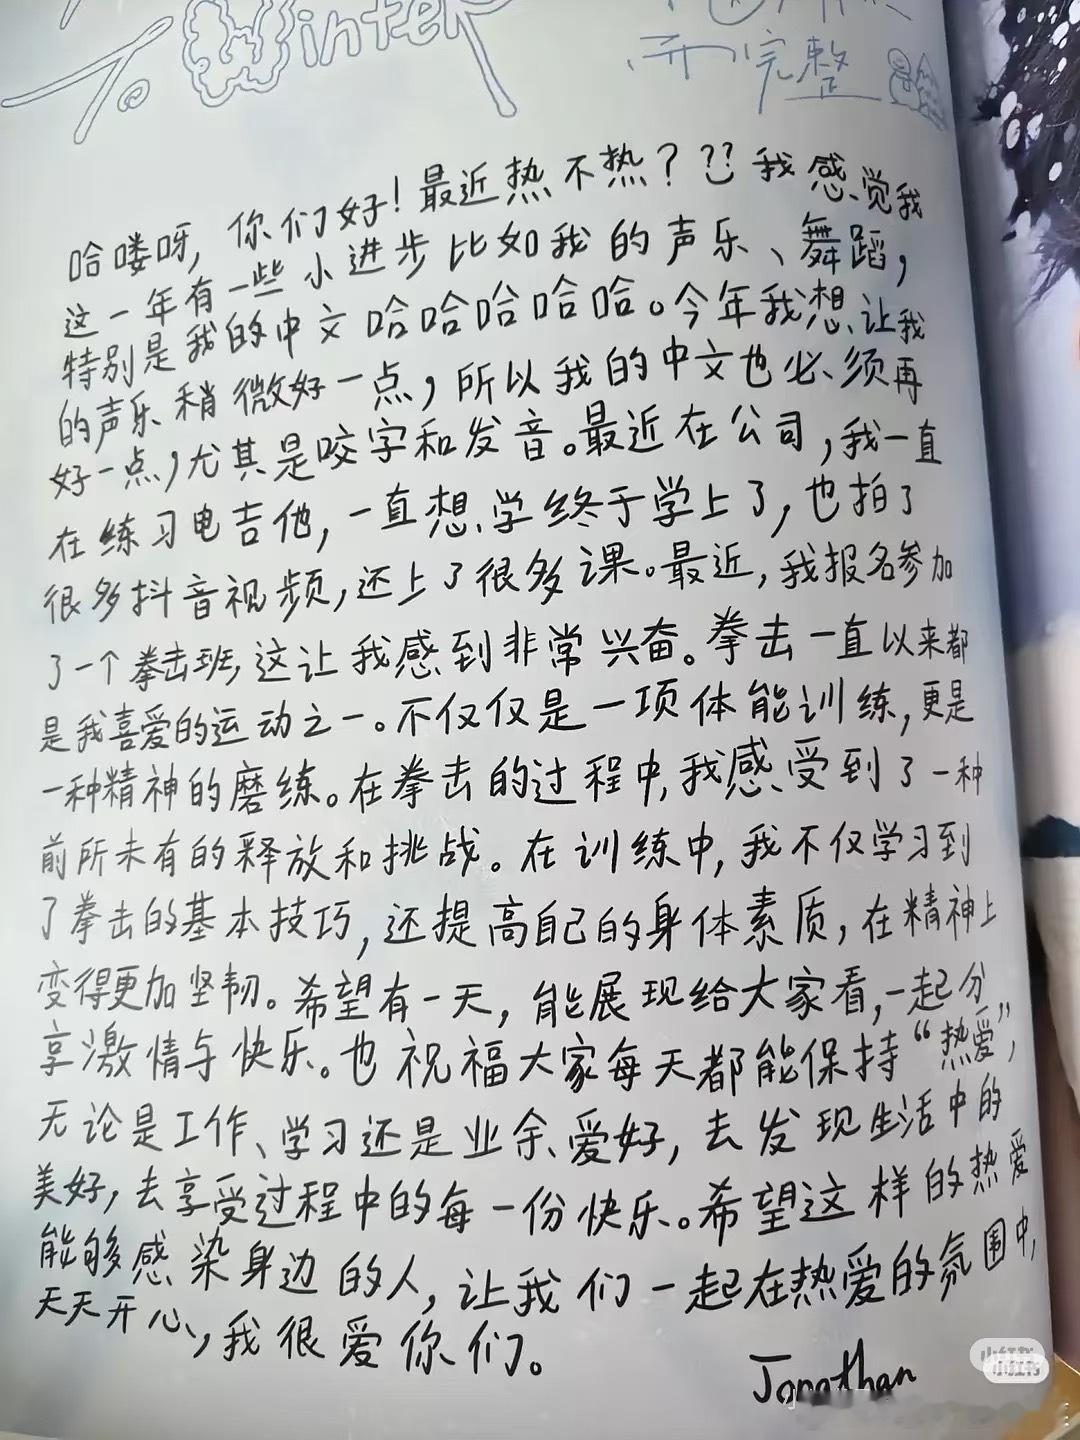 To Winter
而完整
哈喽呀，你们好！最近热不热？？？我感觉我
这一年有一些小进步比如我的声乐、舞蹈，
特别是我的中文哈哈哈哈哈。今年我想让我
的声乐稍微好一点，所以我的中文也必须再
好一点，尤其是咬字和发音。最近在公司，我一直
在练习电吉他，一直想学终于学上了，也拍了
很多抖音视频，还上了很多课。最近，我报名参加
了一个拳击班，这让我感到非常兴奋。拳击一直以来都
是我喜爱的运动之一。不仅仅是一项体能训练，更是
一种精神的磨练。在拳击的过程中，我感受到了一种
前所未有的释放和挑战。在训练中，我不仅学习到
了拳击的基本技巧，还提高自己的身体素质，在精神上
变得更加坚韧。希望有一天，能展现给大家看，一起分
享激情与快乐。也祝福大家每天都能保持“热爱”，
无论是工作、学习还是业余爱好，去发现生活中的
美好，去享受过程中的每一份快乐。希望这样的热爱
能够感染身边的人，让我们一起在热爱的氛围中，
天天开心，我很爱你们。
Jonathan
小红书
小红书